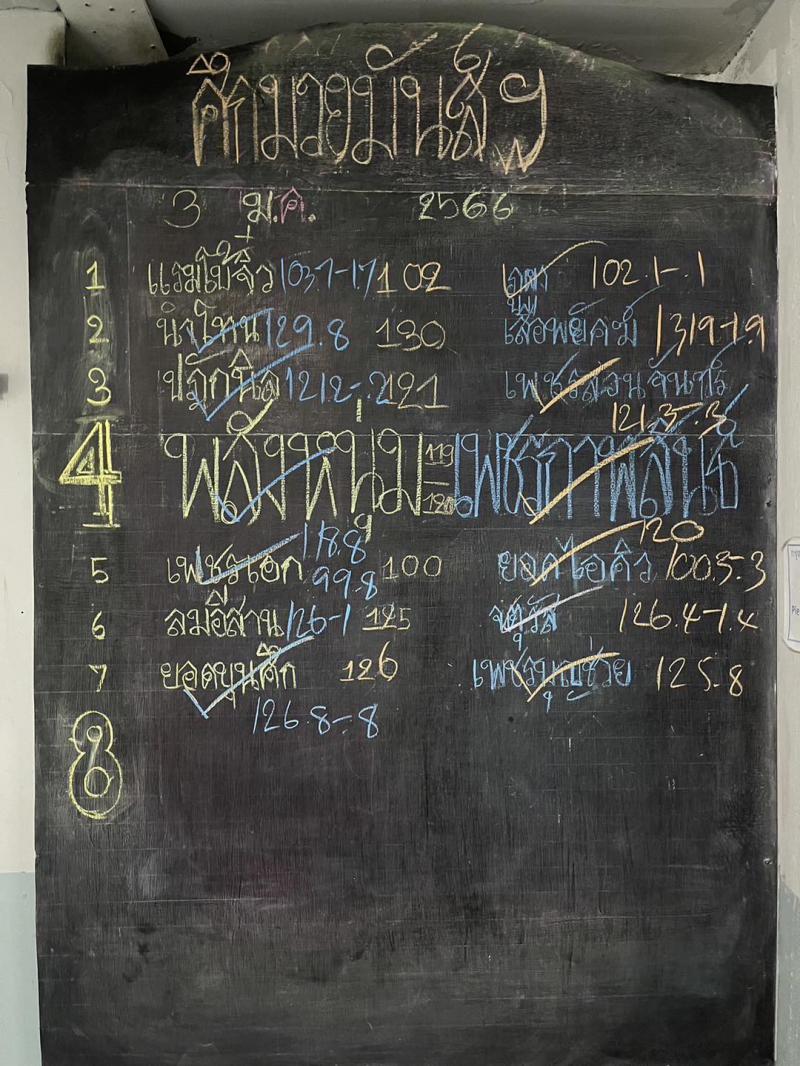 ศึกมวยมันส์ฯ
3 ม.ค. 2566
1 แรมโบ้จิ๋ว 103.7-1.7 102 102.1-.1
2 นำโทน 129.8 130 เสือพยัคฆ์ 131.9-1.9
3 ปฏักนิล 121.2-.2 121 เพชรสวนจันทร์ 121.3-.3
4 พลังหนุ่ม 119-120 เพชรกาฬสินธุ์
118.8 120
5 เพชรเอก 99.8 100 ยอดไอคิว 100.3-.3
6 ลมอีสาน 126-1 125 จตุรัส 126.4-1.4
7 ยอดขุนศึก 126 125.8
126.8-.8
8